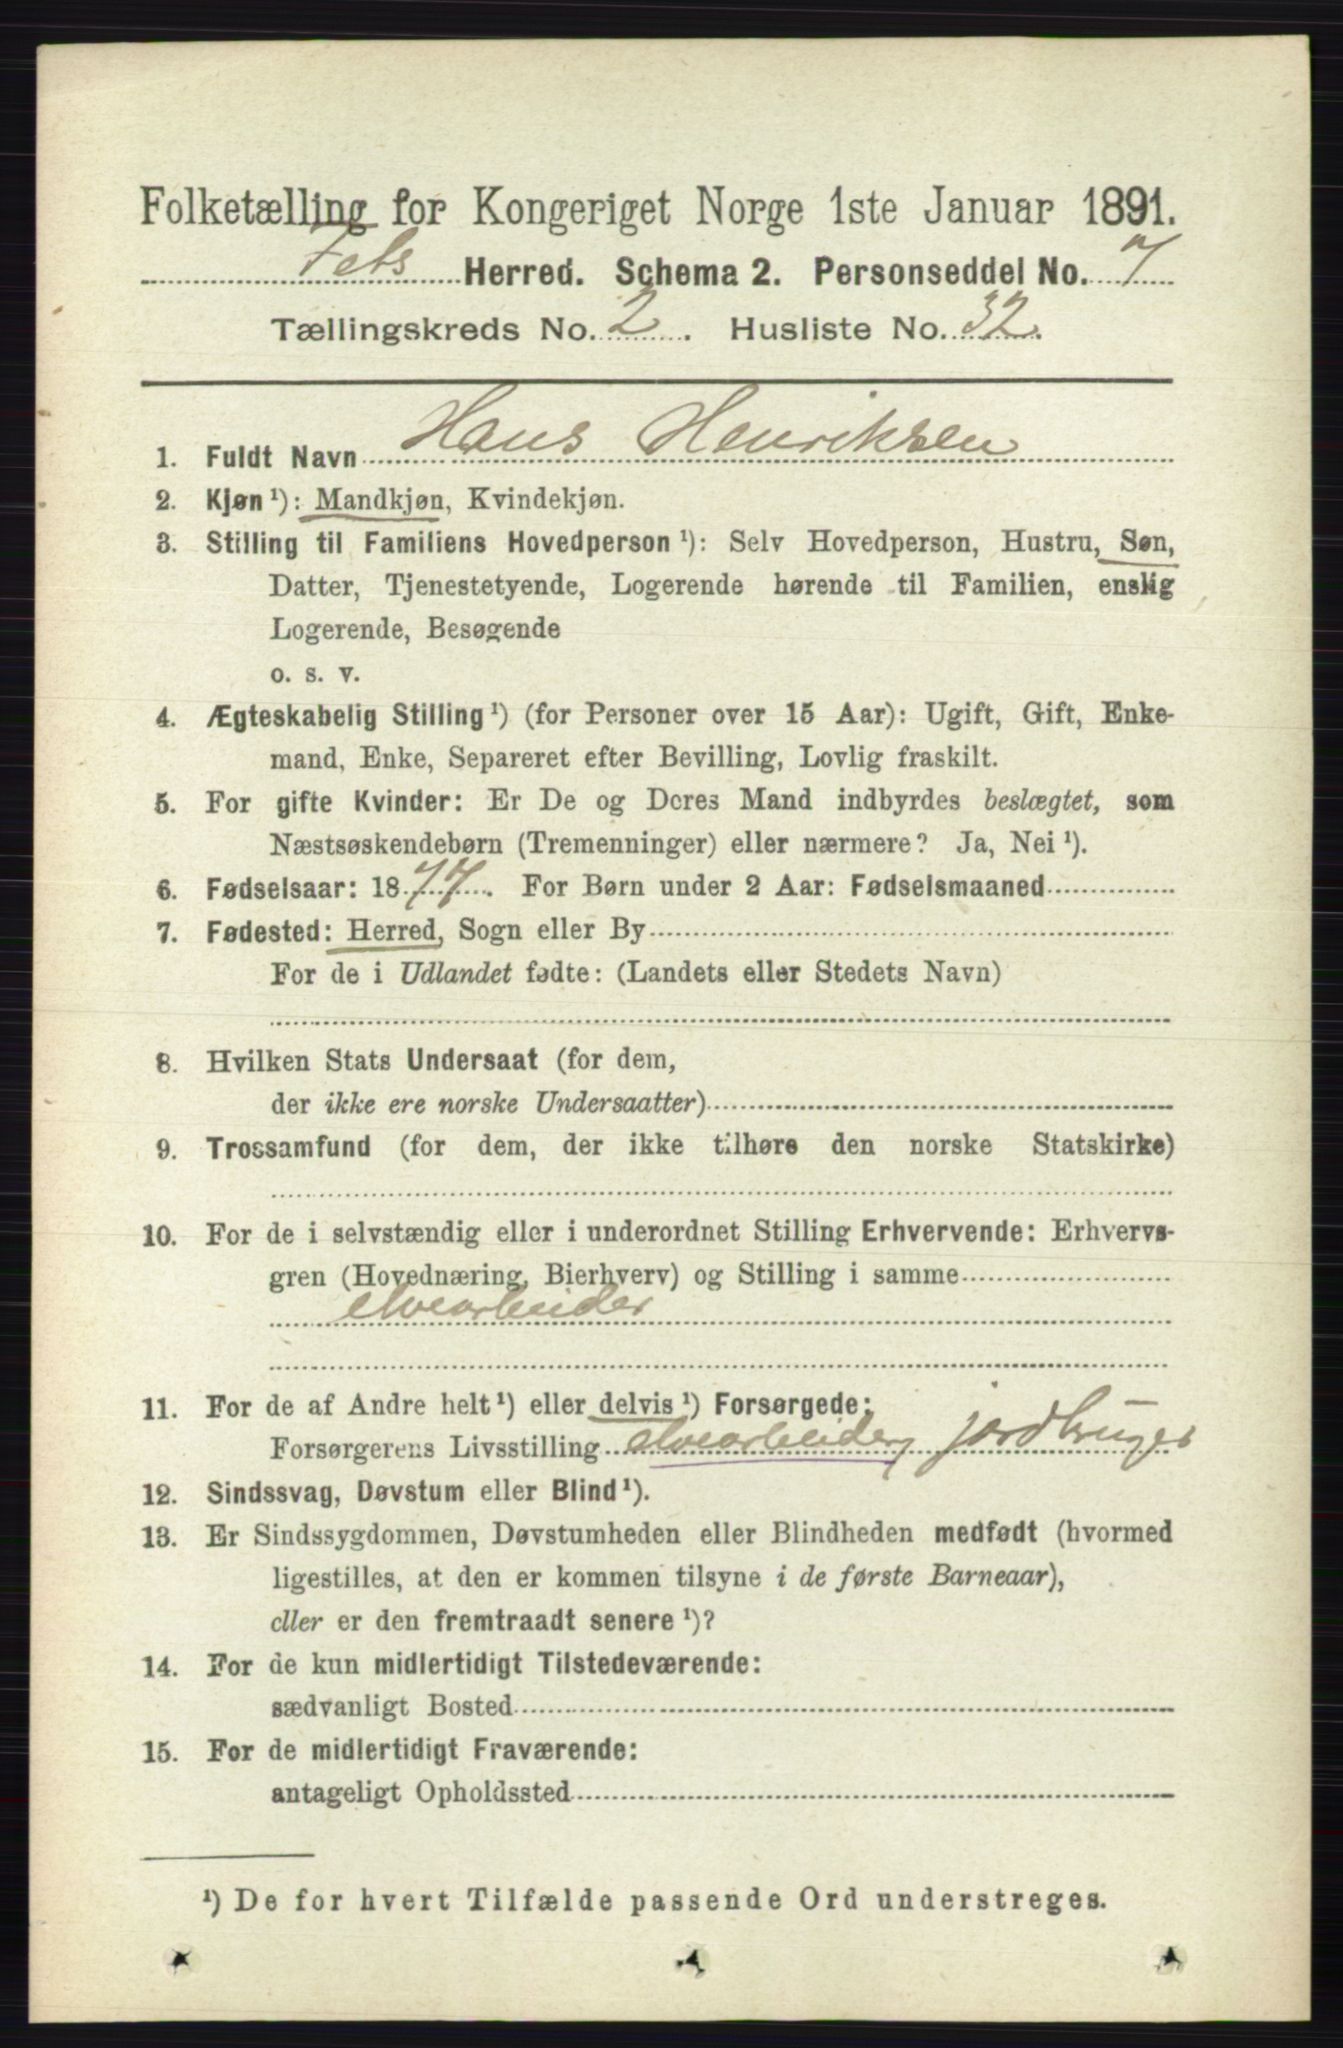 Folketælling for Kongeriget Norge 1ste Januar 1891.
Fets Herred. Schema 2. Personseddel No. 7
Tællingskreds No. 2. Husliste No. 32.
1. Fuldt Navn Hans Henriksen
2. Kjøn ¹): Mandkjøn, Kvindekjøn.
3. Stilling til Familiens Hovedperson ¹): Selv Hovedperson, Hustru, Søn,
Datter, Tjenestetyende, Logerende hørende til Familien, enslig
Logerende, Besøgende
o. s. v.
4. Ægteskabelig Stilling ¹) (for Personer over 15 Aar): Ugift, Gift, Enke-
mand, Enke, Separeret efter Bevilling, Lovlig fraskilt.
5. For gifte Kvinder: Er De og Deres Mand indbyrdes beslægtet, som
Næstsøskendebørn (Tremenninger) eller nærmere? Ja, Nei ¹).
6. Fødselsaar: 1877. For Børn under 2 Aar: Fødselsmaaned
7. Fødested: Herred, Sogn eller By
For de i Udlandet fødte: (Landets eller Stedets Navn)
8. Hvilken Stats Undersaat (for dem,
der ikke ere norske Undersaatter)
9. Trossamfund (for dem, der ikke tilhøre den norske Statskirke)
10. For de i selvstændig eller i underordnet Stilling Erhvervende: Erhvervs-
gren (Hovednæring, Bierhverv) og Stilling i samme
elvearbeider
11. For de af Andre helt ¹) eller delvis ¹) Forsørgede:
Forsørgerens Livsstilling elvearbeider, jordbruger
12. Sindssvag, Døvstum eller Blind ¹).
13. Er Sindssygdommen, Døvstumheden eller Blindheden medfødt (hvormed
ligestilles, at den er kommen tilsyne i de første Barneaar),
eller er den fremtraadt senere ¹)?
14. For de kun midlertidigt Tilstedeværende:
sædvanligt Bosted
15. For de midlertidigt Fraværende:
antageligt Opholdssted
¹) De for hvert Tilfælde passende Ord understreges.